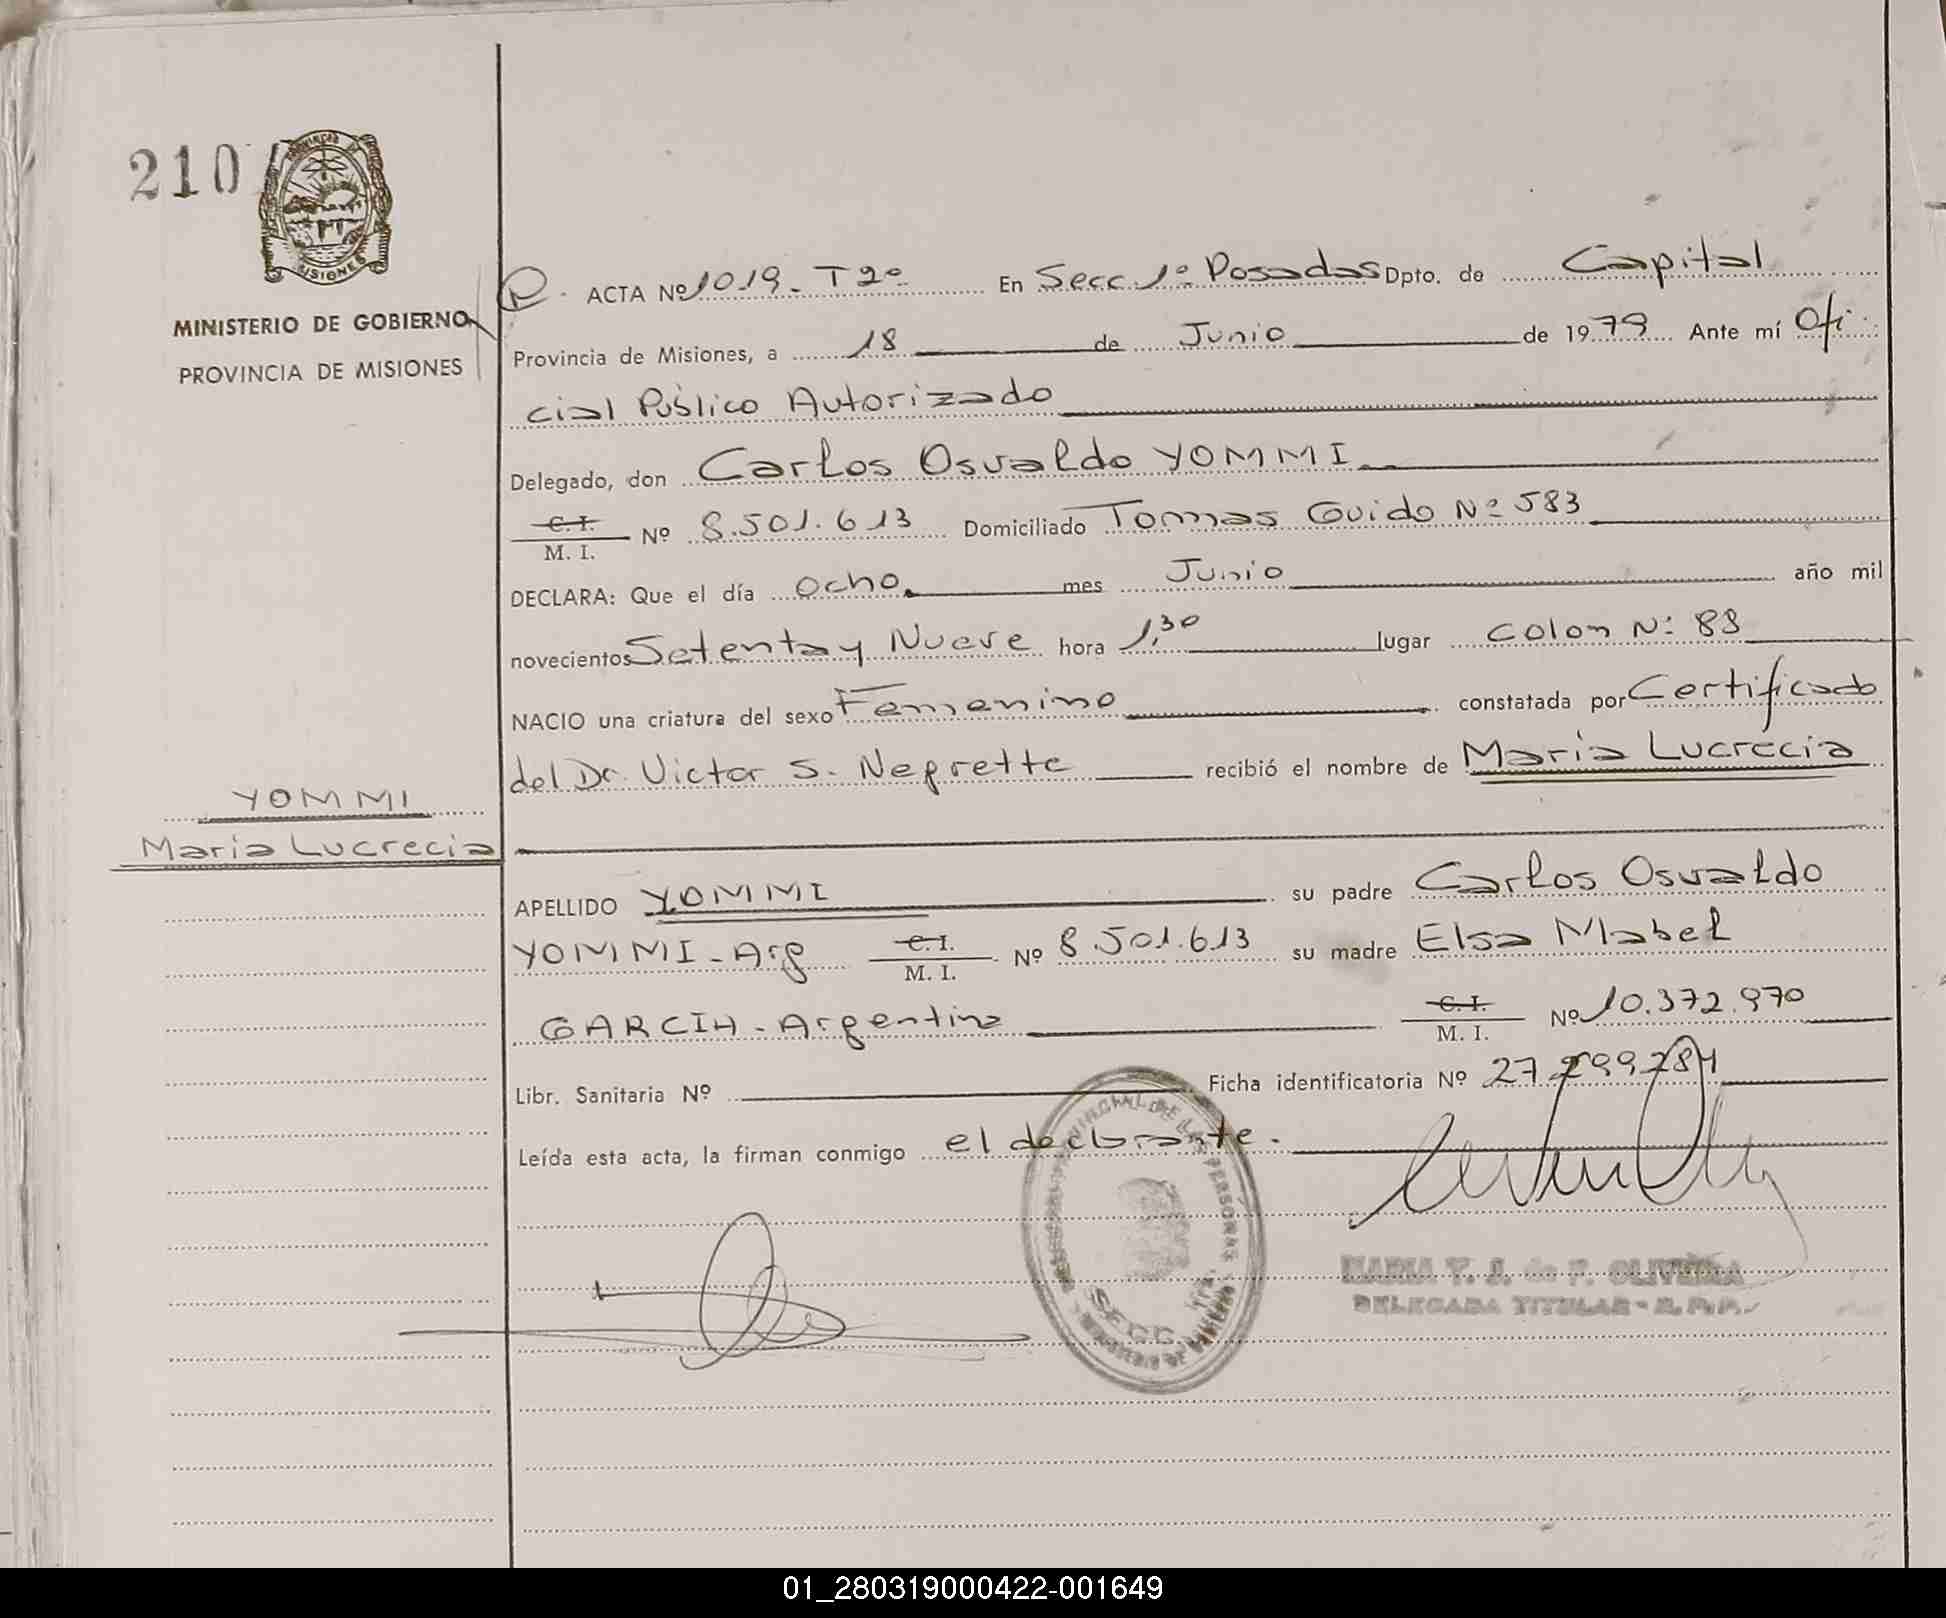 210
PROVINCIA DE
MISIONES
MINISTERIO DE GOBIERNO
PROVINCIA DE MISIONES
YOMMI
Maria Lucrecia
P. ACTA Nº 1019 - T 2º En Secc 1º Posadas Dpto. de Capital
Provincia de Misiones, a 18 de Junio de 1979 Ante mí Ofi
cial Público Autorizado
Delegado, don Carlos Osvaldo YOMMI
C. I.
M. I. Nº 8.501.613 Domiciliado Tomas Guido Nº 583
DECLARA: Que el día ocho mes Junio año mil
novecientos Setenta y Nueve hora 1,30 lugar Colon Nº 88
NACIO una criatura del sexo Femenino constatada por Certificado
del Dr. Victor S. Negrette recibió el nombre de Maria Lucrecia
APELLIDO YOMMI su padre Carlos Osvaldo
YOMMI - Arg C. I. M. I. Nº 8.501.613 su madre Elsa Mabel
GARCIA - Argentina C. I. M. I. Nº 10.372.970
Libr. Sanitaria Nº Ficha identificatoria Nº 27.299.284
Leída esta acta, la firman conmigo el declarante.
PROVINCIAL DE LAS PERSONAS
SECC. 1ra.
MARIA Y. J. de F. OLIVEIRA
DELEGADA TITULAR - R.P.P.
01_280319000422-001649